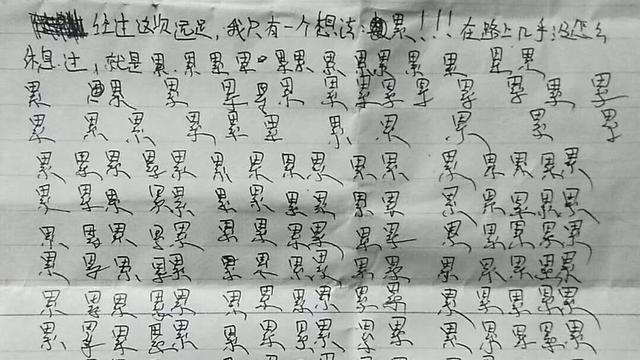 经过这次远足,我只有一个想法:累!!!在路上几乎没怎么
休息过,就是累累累累累累累累累累累累累
累累累累累累累累累累累累累累
累累累累累累累累累累累
累累累累累累累累累累累累累累累累
累累累累累累累累累累累累累累累累
累累累累累累累累累累累累累累累累
累累累累累累累累累累累累累累累累
累累累累累累累累累累累累累累累累
累累累累累累累累累累累累累累累累